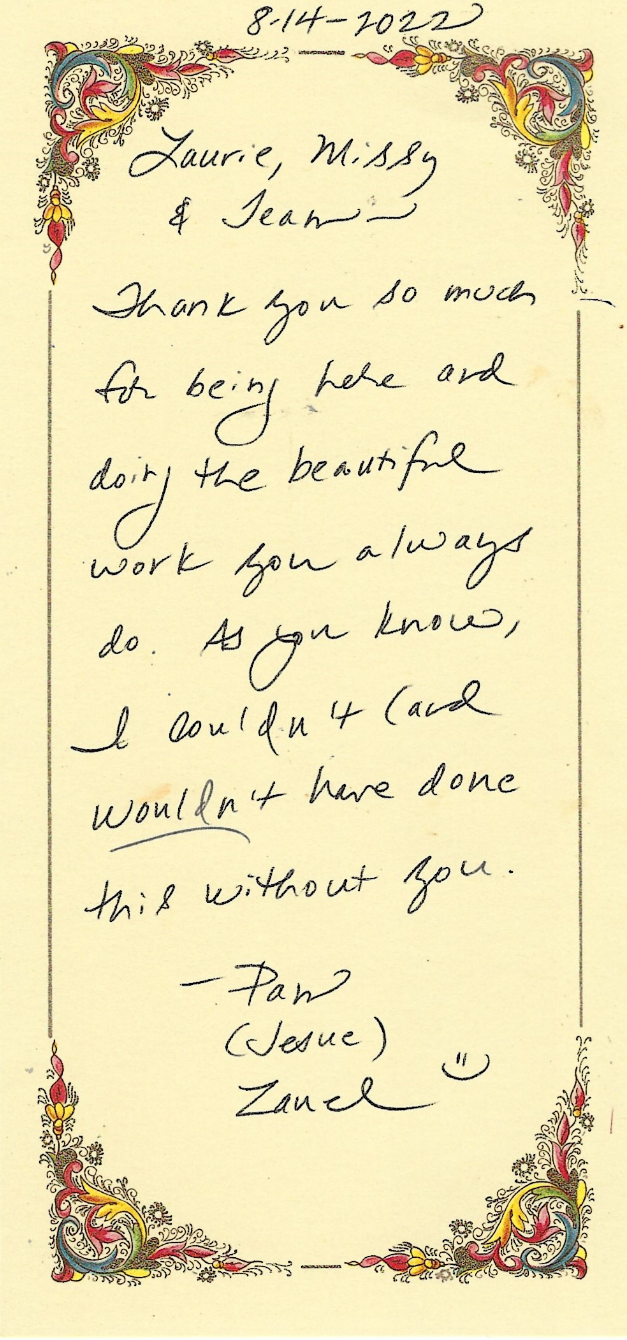 8-14-2022
Laurie, Missy
& Team —
Thank you so much
for being here and
doing the beautiful
work you always
do. As you know,
I couldn't (and
wouldn't have done
this without you.
— Pam
(Jesue)
Zanel